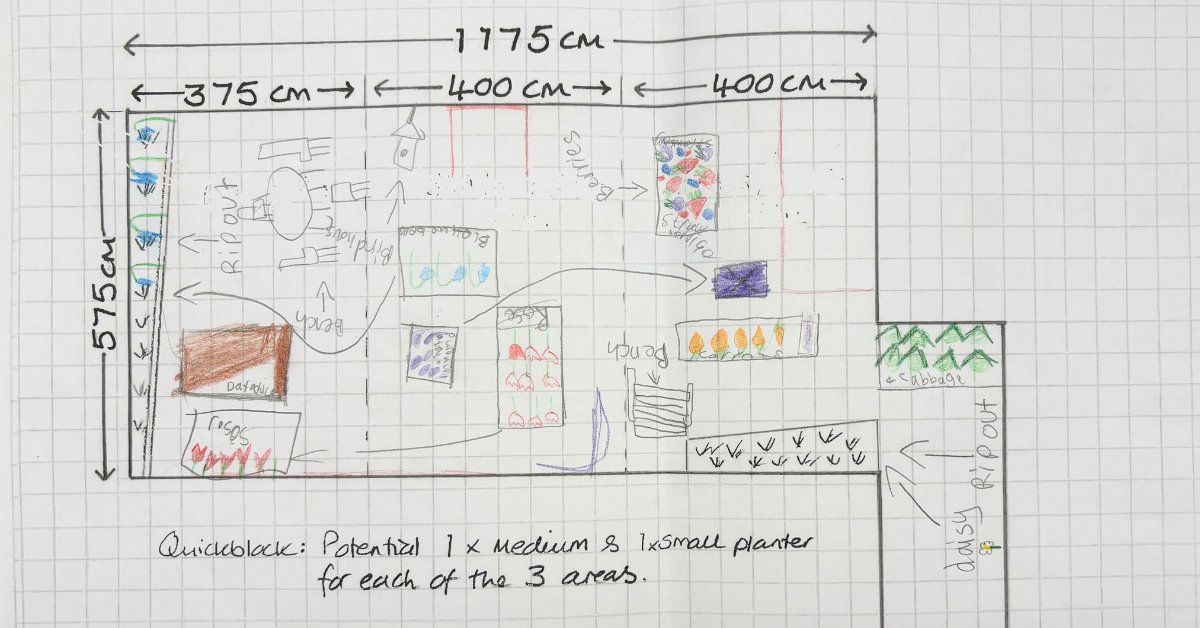 1175cm
375cm
400cm
400cm
575cm
RIP OUT
Birdhouse
Bench
Berries
Rose
Bench
carrots
cabbage
RIP OUT
daisy
Quickblock: Potential 1 x Medium & 1xsmall planter
for each of the 3 areas.